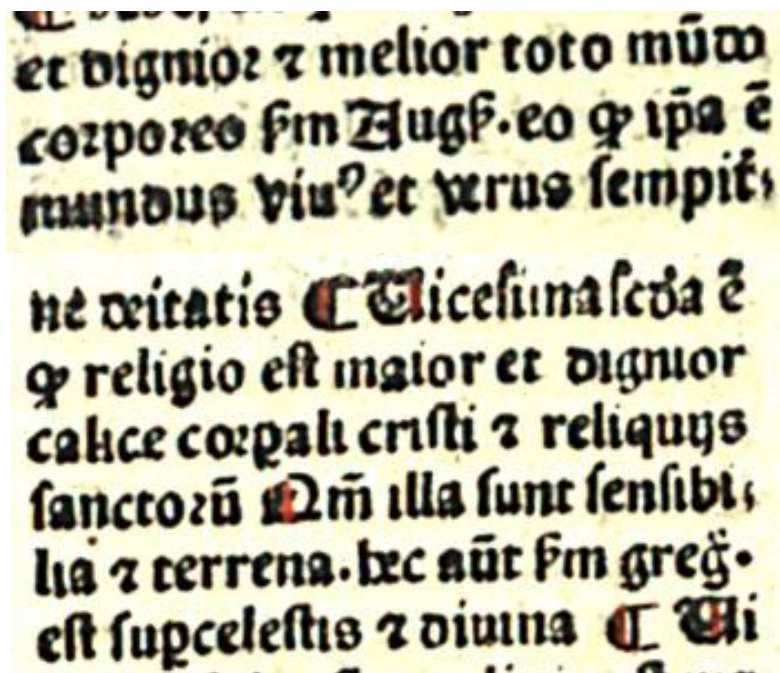 et dignior ⁊ melior toto mūdo
corporeo ẜm Augꝰ. eo ꝙ ip̄a ē
mundus viuꝰ et verus sempit̾⸗
ne deitatis ¶ Uicesima scďa ē
ꝙ religio est maior et dignior
calice corꝑali cristi ⁊ reliquijs
sanctorū Qm̄ illa sunt sensibi⸗
lia ⁊ terrena. hec aūt ẜm greg̾.
est suꝑcelestis ⁊ diuina ¶ Ui